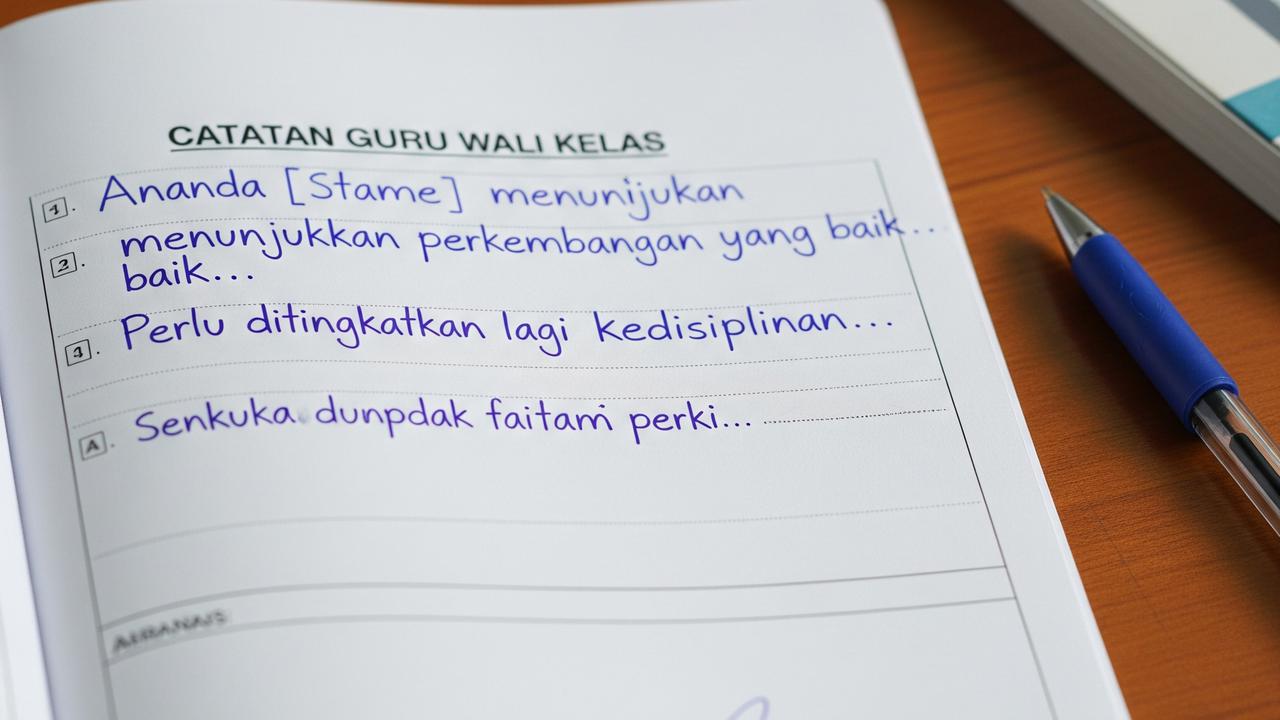 CATATAN GURU WALI KELAS
1. Ananda [Stame] menunijukan
2. menunjukkan perkembangan yang baik...
baik...
Perlu ditingkatkan lagi kedisiplinan...
A. Senkuka dunpdak faitam perki...